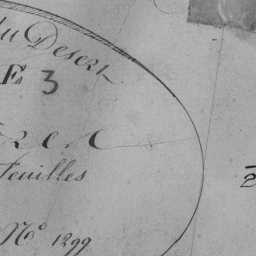 du Desert
Fs 3
feuilles
No 1299
2